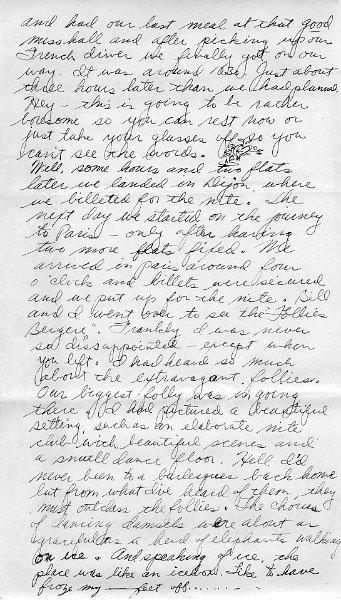 and had our last meal at that good
mess hall and after picking up our
French driver we finally got on our
way. It was around just about
three hours later than we had planned.
Hey - this is going to be rather
boresome so you can rest now or
just take your glasses off so you
can't see the words.
Well, some hours and two flats
later we landed in Dijon, where
we billeted for the nite. The
next day we started on the journey
to Paris - only after having
two more flats fixed. We
arrived in Paris around four
o'clock and billets were secured
and we put up for the nite. Bill
and I went over to see the "Follies
Bergere". Frankly I was never
so dissappointed - except when
you left. I had heard so much
about the extravagant follies.
Our biggest folly was in going
there. I had pictured a beautiful
setting, such as an elaborate nite
club with beautiful scenes and
a small dance floor. Hell I'd
never been to a burlesques back home
but from what I've heard of them, they
must outclass the follies. The chorus
of dancing damsels were about as
graceful as a herd of elephants walking
on ice. And speaking of ice, the
place was like an icebox. Like to have
froze my — feet off........